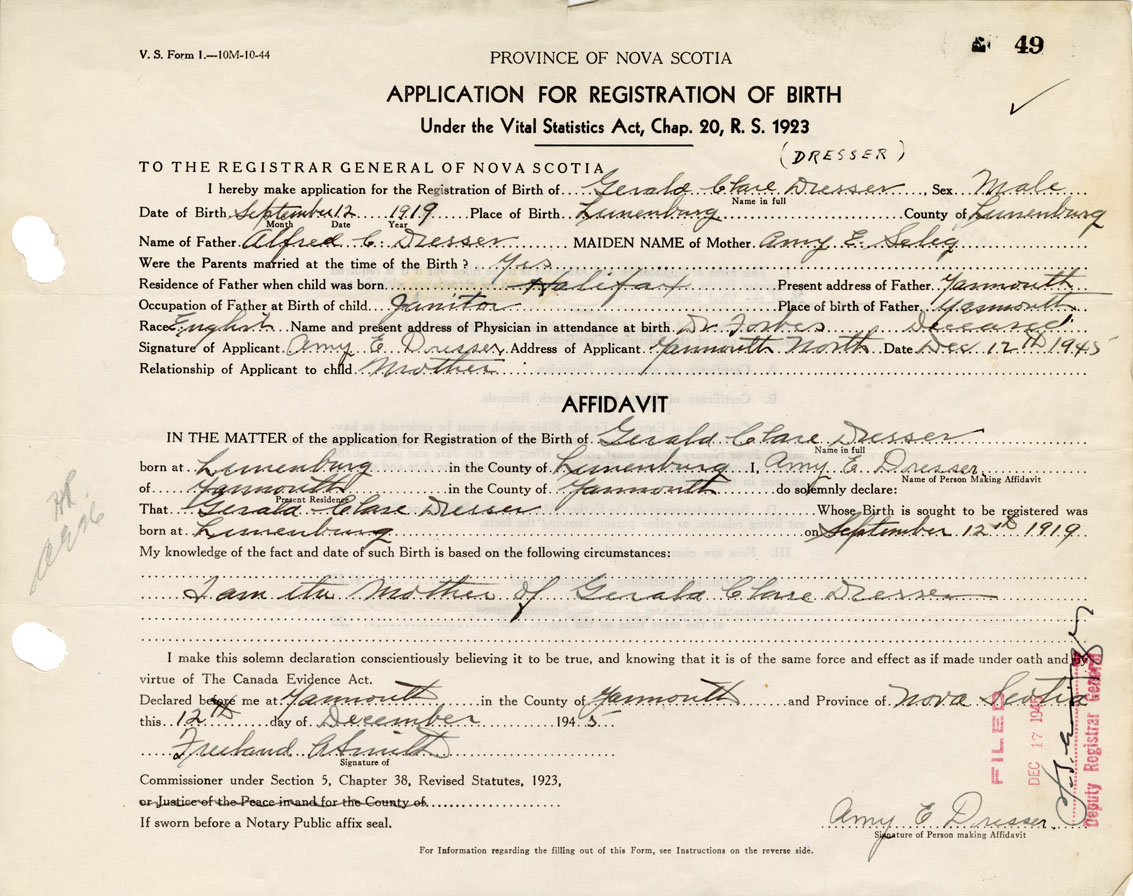 V. S. Form 1.—10M-10-44
49
PROVINCE OF NOVA SCOTIA
APPLICATION FOR REGISTRATION OF BIRTH
Under the Vital Statistics Act, Chap. 20, R. S. 1923
(DRESSER)
TO THE REGISTRAR GENERAL OF NOVA SCOTIA
I hereby make application for the Registration of Birth of Gerald Clare Dresser, Sex Male
Name in full
Date of Birth September 12 1919 Place of Birth Lunenburg County of Lunenburg
Month Date Year
Name of Father Alfred C. Dresser MAIDEN NAME of Mother Amy E. Selig
Were the Parents married at the time of the Birth? Yes
Residence of Father when child was born Halifax Present address of Father Yarmouth
Occupation of Father at Birth of child Janitor Place of birth of Father Yarmouth
Race English Name and present address of Physician in attendance at birth Dr. Forbes Deceased
Signature of Applicant Amy E Dresser Address of Applicant Yarmouth North Date Dec 12th 1945
Relationship of Applicant to child Mother
AFFIDAVIT
IN THE MATTER of the application for Registration of the Birth of Gerald Clare Dresser
Name in full
born at Lunenburg in the County of Lunenburg I, Amy E. Dresser
Name of Person Making Affidavit
of Yarmouth in the County of Yarmouth do solemnly declare:
Present Residence
That Gerald Clare Dresser Whose Birth is sought to be registered was
born at Lunenburg on September 12th 1919
My knowledge of the fact and date of such Birth is based on the following circumstances:
I am the Mother of Gerald Clare Dresser
I make this solemn declaration conscientiously believing it to be true, and knowing that it is of the same force and effect as if made under oath and by
virtue of The Canada Evidence Act.
Declared before me at Yarmouth in the County of Yarmouth and Province of Nova Scotia
this 12th day of December 1945
Freeland A Smith
Signature of
Commissioner under Section 5, Chapter 38, Revised Statutes, 1923,
or Justice of the Peace in and for the County of
If sworn before a Notary Public affix seal.
Amy E Dresser
Signature of Person making Affidavit
For Information regarding the filling out of this Form, see Instructions on the reverse side.
FILED
DEC 17 194
Deputy Registrar General